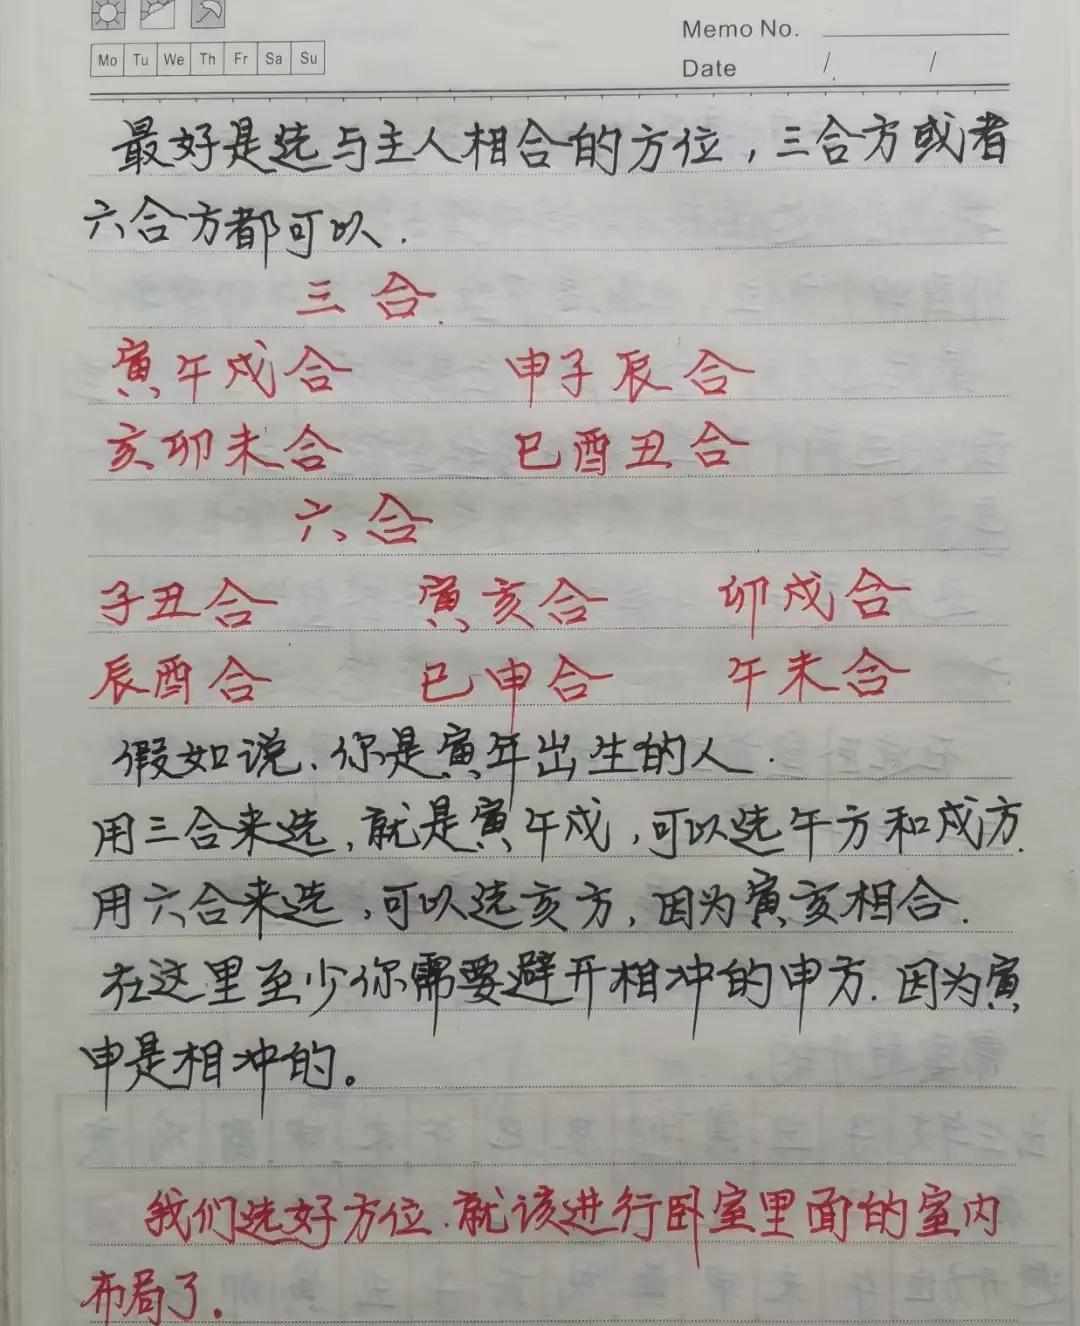 Memo No.
Mo Tu We Th Fr Sa Su
Date / /
最好是选与主人相合的方位，三合方或者
六合方都可以.
三合.
寅午戌合 申子辰合
亥卯未合 巳酉丑合
六合
子丑合 寅亥合 卯戌合
辰酉合 巳申合 午未合
假如说、你是寅年出生的人.
用三合来选,就是寅午戌,可以选午方和戌方.
用六合来选,可以选亥方,因为寅亥相合.
在这里至少你需要避开相冲的申方.因为寅
申是相冲的。
我们选好方位.就该进行卧室里面的室内
布局了.